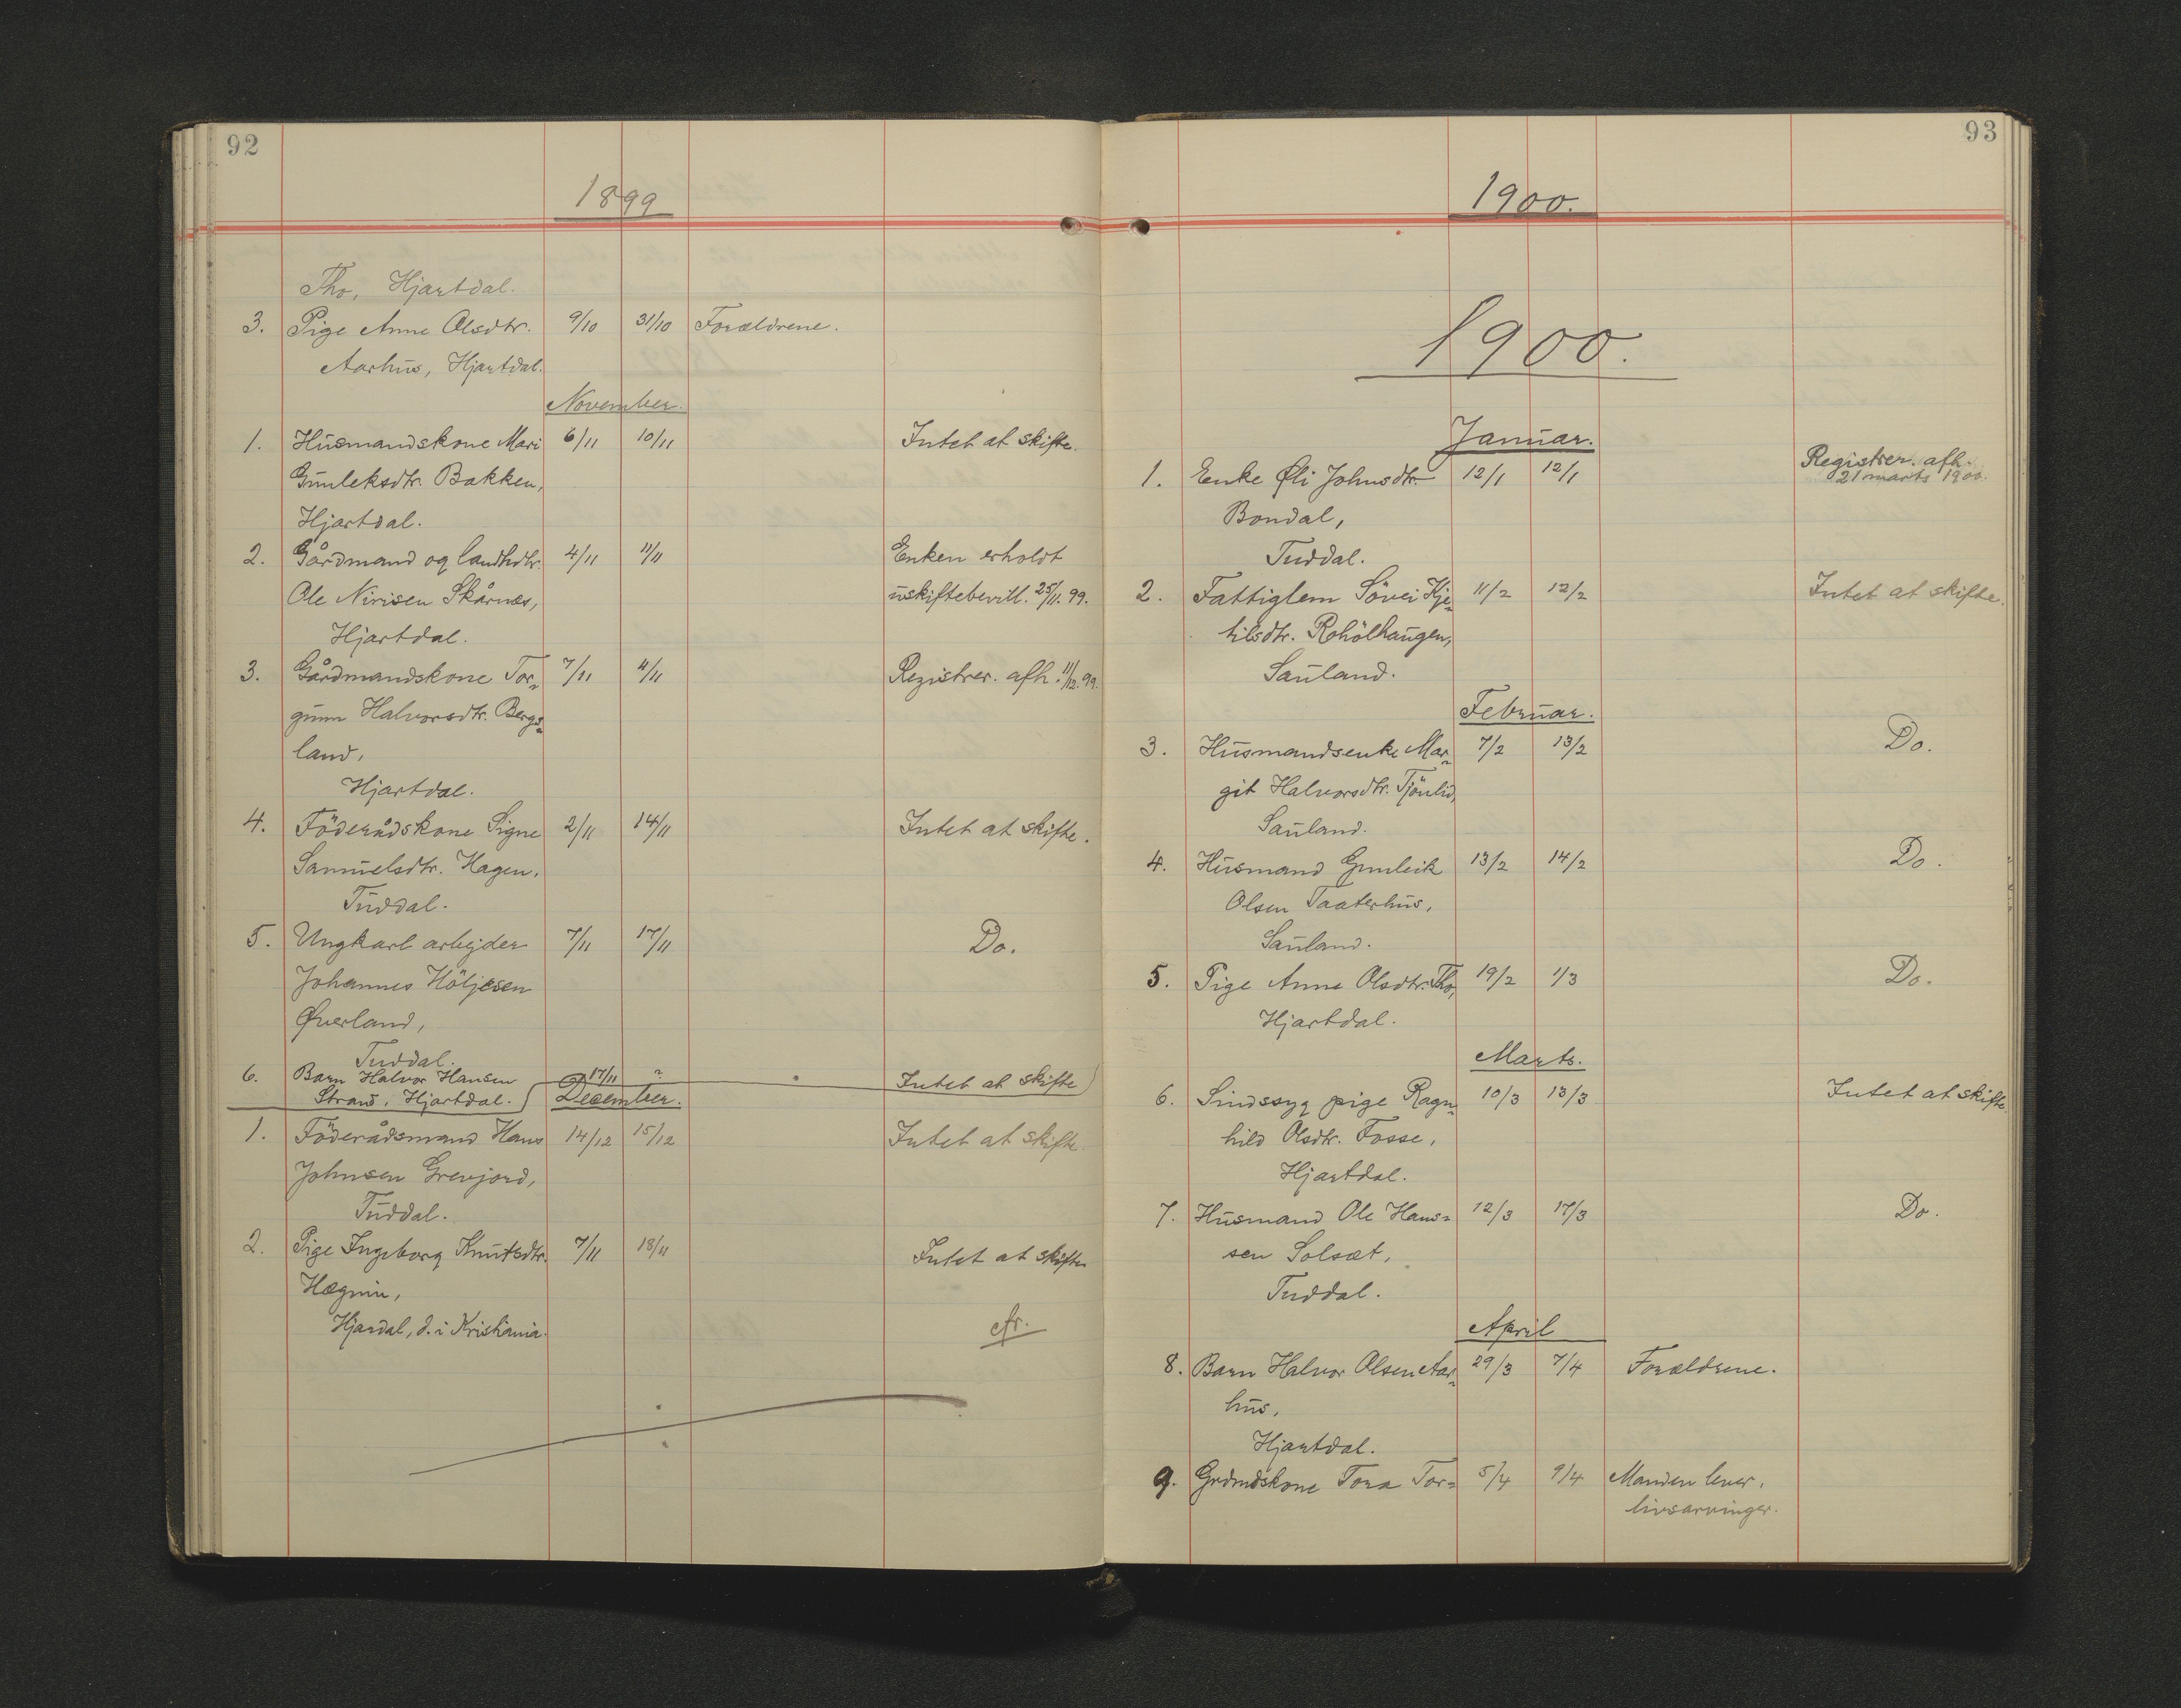 92
1899
Tho, Hjartdal.
3. Pige Anne Olsdtr. 9/10 31/10 Forældrene.
Aarhus, Hjartdal.
November.
1. Husmandskone Mari 6/11 10/11 Intet at skifte.
Gunleksdtr. Bakken,
Hjartdal.
2. Gårdmand og landhdlr. 4/11 11/11 Enken erholdt
Ole Nirisen Skårnes, uskiftebevill. 25/11. 99.
Hjartdal.
3. Gårdmandskone Tor- 7/11 11/11 Registrer. afh. 11/12. 99.
gunn Halvorsdtr. Bergs-
land,
Hjartdal.
4. Föderådskone Signe 2/11 14/11 Intet at skifte.
Samuelsdtr. Hagen.
Tuddal.
5. Ungkarl arbejder 7/11 17/11 Do.
Johannes Höljesen
Øverland,
Tuddal.
6. Barn Halvor Hansen 17/11 ? Intet at skifte
Strand, Hjartdal.
December.
1. Föderådsmand Hans 14/12 15/12 Intet at skifte.
Johnsen Grevjord,
Tuddal.
2. Pige Ingeborg Knutsdtr. 7/11 18/11 Intet at skifte
Hægnin,
Hjardal, d. i Kristiania.
93
1900.
1900.
Januar.
1. Enke Øli Johnsdtr. 12/1 12/1 Registrer. afh.
21 marts 1900.
Bondal,
Tuddal.
2. Fattiglem Sövei Kje- 11/2 12/2 Intet at skifte.
tilsdtr. Rohölhaugen,
Sauland.
Februar.
3. Husmandsenke Mar- 7/2 13/2 Do.
git Halvorsdtr. Tjönlid,
Sauland.
4. Husmand Gunleik 13/2 14/2 Do.
Olsen Taaterhus,
Sauland.
5. Pige Anne Olsdtr. Tho, 19/2 1/3 Do.
Hjartdal.
Marts.
6. Sindssyg pige Ragn- 10/3 13/3 Intet at skifte.
hild Olsdtr. Fosse,
Hjartdal.
7. Husmand Ole Hans- 12/3 17/3 Do.
sen Solsæt,
Tuddal.
April
8. Barn Halvor Olsen Aar- 29/3 7/4 Forældrene.
hus,
Hjartdal.
9. Grdmdskone Tora Tor- 5/4 9/4 Manden lever,
livsarvinger.